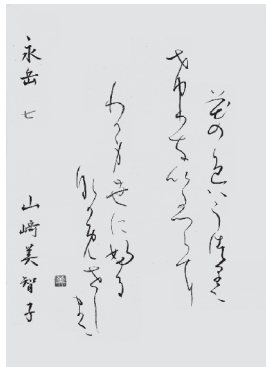 花の色はうつりに
けりないたつらに
わか身世に婦る
なかめせしまに
永岳 七 山﨑美智子